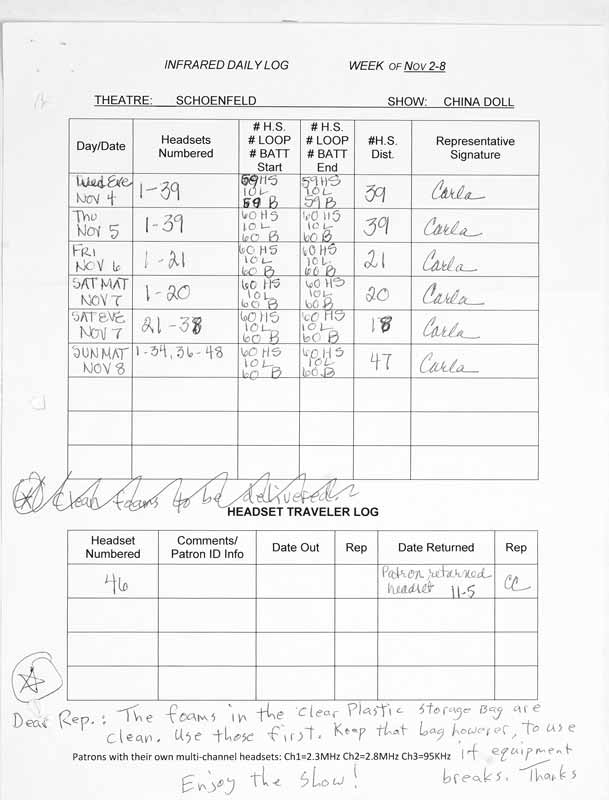 INFRARED DAILY LOG WEEK OF NOV 2-8
THEATRE: SCHOENFELD SHOW: CHINA DOLL
Day/Date Headsets Numbered # H.S. # LOOP # BATT Start # H.S. # LOOP # BATT End #H.S. Dist. Representative Signature
Wed Eve NOV 4 1-39 59 HS 10 L 59 B 59 HS 10 L 59 B 39 Carla
Thu NOV 5 1-39 60 HS 10 L 60 B 60 HS 10 L 60 B 39 Carla
FRI NOV 6 1-21 60 HS 10 L 60 B 60 HS 10 L 60 B 21 Carla
SAT MAT NOV 7 1-20 60 HS 10 L 60 B 60 HS 10 L 60 B 20 Carla
SAT EVE NOV 7 21-38 60 HS 10 L 60 B 60 HS 10 L 60 B 18 Carla
SUN MAT NOV 8 1-34, 36-48 60 HS 10 L 60 B 60 HS 10 L 60 B 47 Carla
Clean foams to be delivered.
HEADSET TRAVELER LOG
Headset Numbered Comments/ Patron ID Info Date Out Rep Date Returned Rep
46 Patron returned headset 11-5 CC
Dear Rep.: The foams in the clear Plastic storage Bag are
clean. Use those first. Keep that bag however, to use
Patrons with their own multi-channel headsets: Ch1=2.3MHz Ch2=2.8MHz Ch3=95KHz if equipment
Enjoy the Show! breaks. Thanks